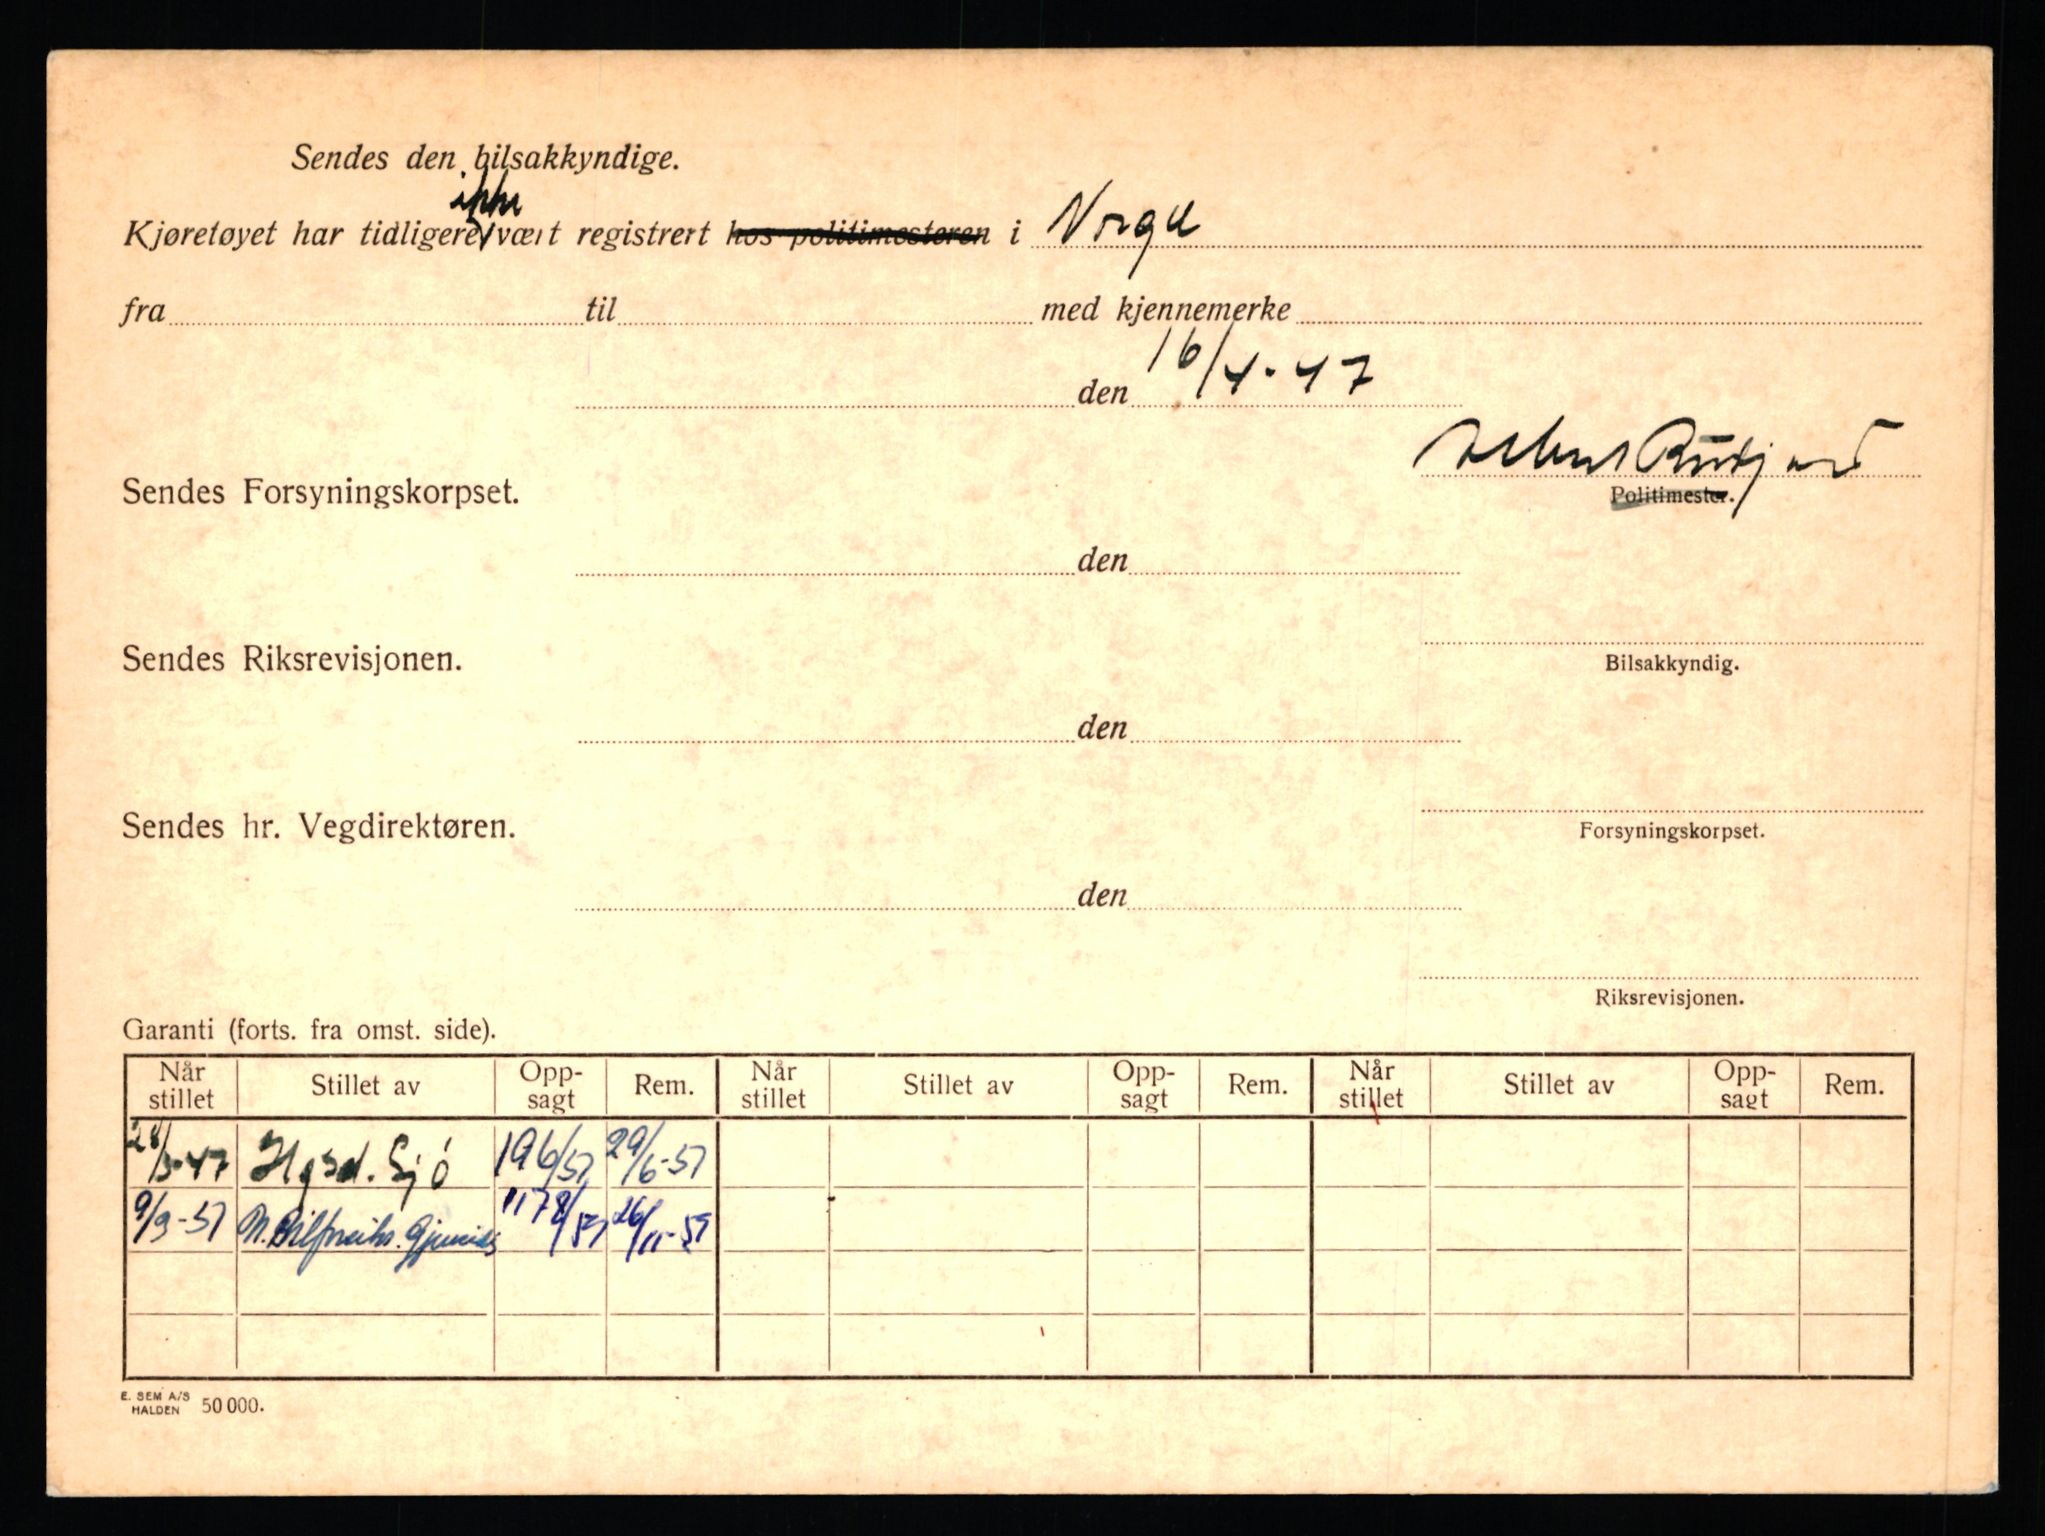 Sendes den bilsakkyndige.
ikke
Kjøretøyet har tidligere vært registrert hos politimesteren i Norge
fra til med kjennemerke
den 16/4-47
Sendes Forsyningskorpset.
Politimester.
den
Sendes Riksrevisjonen.
Bilsakkyndig.
den
Sendes hr. Vegdirektøren.
Forsyningskorpset.
den
Riksrevisjonen.
Garanti (forts. fra omst. side).
Når stillet Stillet av Opp-sagt Rem. Når stillet Stillet av Opp-sagt Rem. Når stillet Stillet av Opp-sagt Rem.
28/3-47 Hgsd. Sjó 196/57 29/6-57
9/9-57 N. Bilforsikr. Gjensidig 1178/59 26/11-59
E. SEM A/S
HALDEN 50 000.